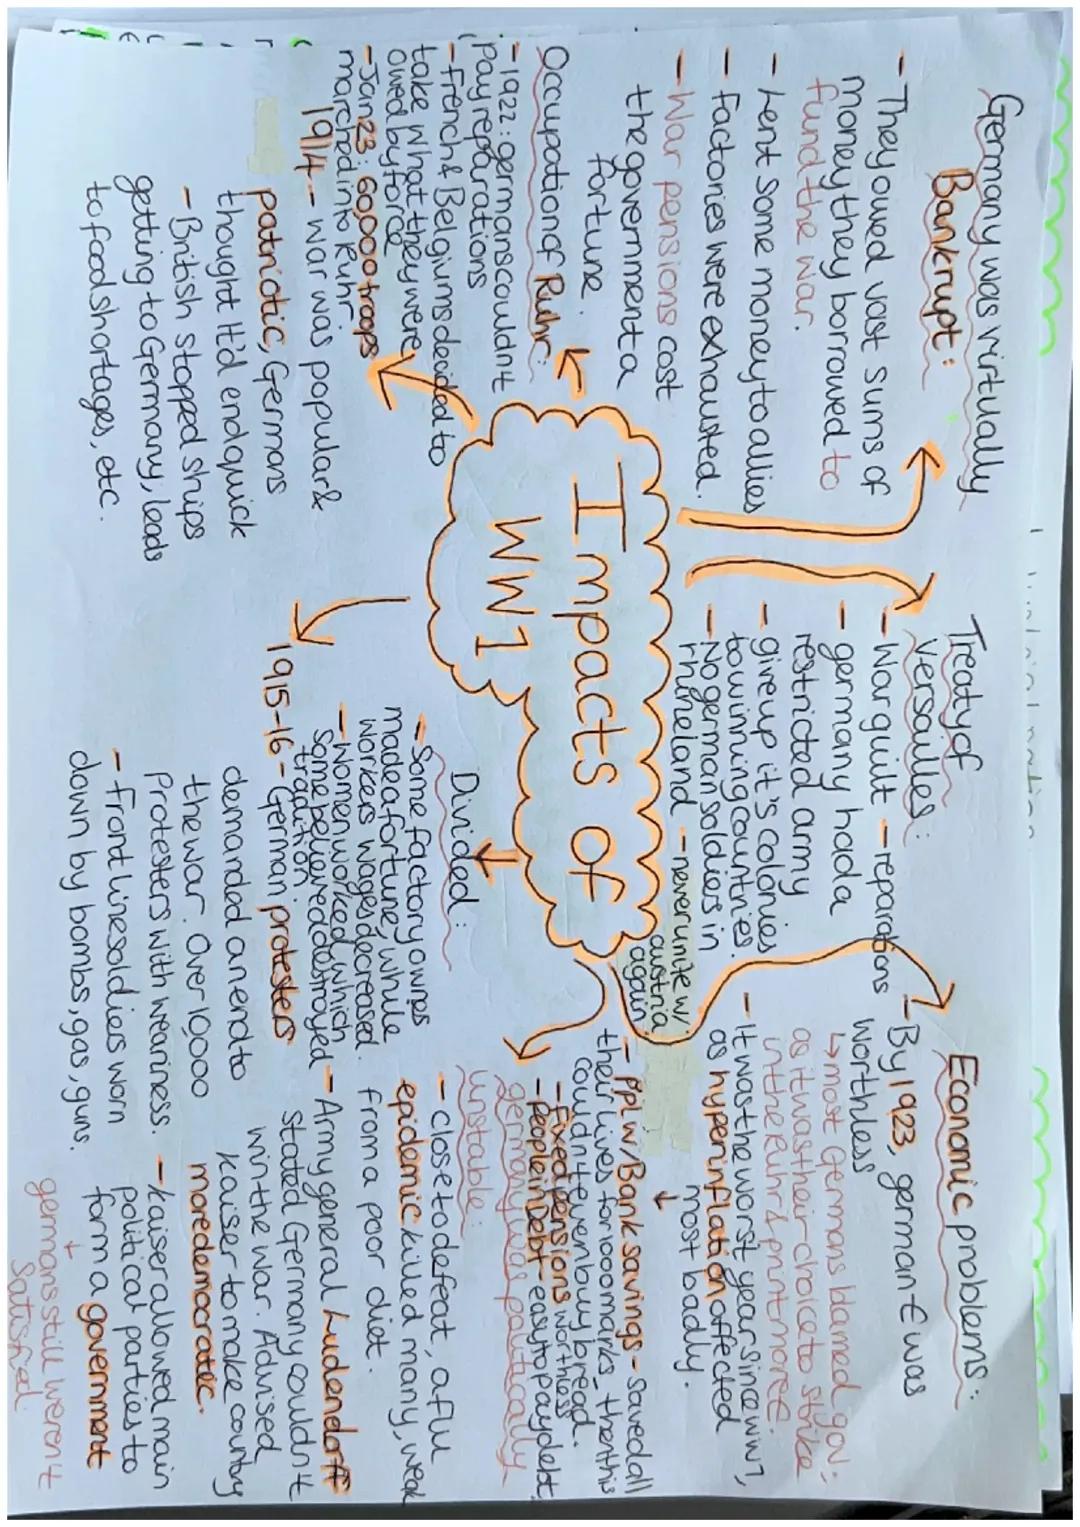 Impacts of
WW1
Germany was virtually
Bankrupt:
- They owed vast sums of
money they borrowed to
fund the war.
- Lent some money to allies
- Factories were exhausted.
- War pensions cost
the government a
fortune.
Treaty of
Versailles:
- War guilt - reparations
- germany had a
restricted army
- give up it's colonies
to winning countries.
- No german soldies in
rhineland - never unite w/
austria
again
Economic problems:
- By 1923, german € was
worthless
↳ most Germans blamed gov;
as it was their choice to strike
in the Ruhr & print more €.
- It was the worst year since ww1,
as hyperinflation affected
most badly.
↓
- Ppl w/ Bank savings - saved all
their lives for 1000 marks - then this
couldn't even buy bread.
- Fixed pensions worthless
- People in Debt - easy to pay debt
Occupation of Ruhr:
- 1922: germans couldn't
pay reparations
- French & Belgiums decided to
take what they were
owed by force
- Jan 23: 60,000 troops
marched into Ruhr
Divided:
- Some factory owners
made a fortune, while
workers wages decreased.
- Women worked, which
some believed destroyed
tradition.
germany was politically
unstable:
- close to defeat, a flu
epidemic killed many, weak
from a poor diet.
- Army general Ludendorff
stated Germany couldn't
win the war. Advised
Kaiser to make country
more democratic.
- Kaiser allowed main
political parties to
form a government
↓
germans still weren't
satisfied.
1914 - war was popular &
patriotic, Germans
thought it'd end quick
- British stopped ships
getting to Germany, leads
to food shortages, etc.
1915-16 - German protesters
demanded an end to
the war. Over 10,000
Protesters with weariness.
- front line soldiers worn
down by bombs, gas, guns.